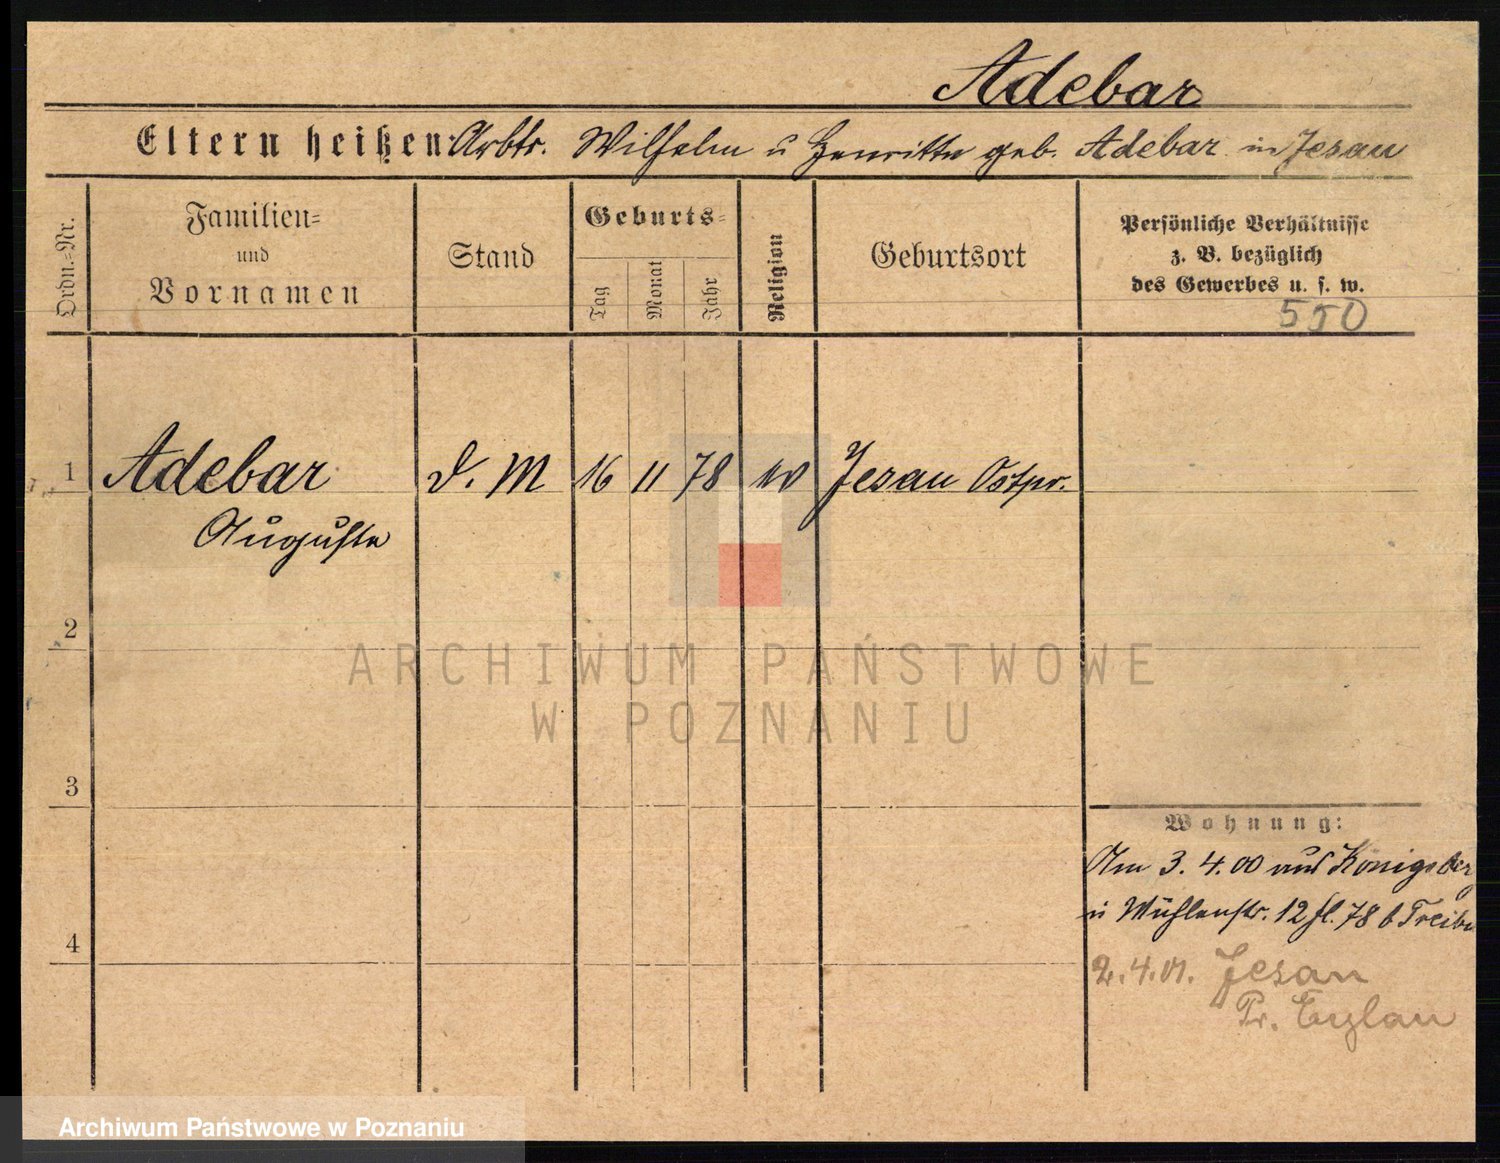 Adebar
Eltern heißen Arbtr. Wilhelm u Henriette geb. Adebar in Jesau
Ordn.=Nr.
Familien=
und
Vornamen
Stand
Geburts=
Tag
Monat
Jahr
Religion
Geburtsort
Persönliche Verhältnisse
z. B. bezüglich
des Gewerbes u. s. w.
550
1 Adebar d. M 16 11 78 ev Jesau Ostpr.
Auguste
2
ARCHIWUM PAŃSTWOWE
W POZNANIU
3
Wohnung:
Am 3. 4. 00 aus Königsberg
n Mühlenstr. 12 fl. 78 b
4
2. 4. 01. Jesau
Pr. Eylau
Archiwum Państwowe w Poznaniu